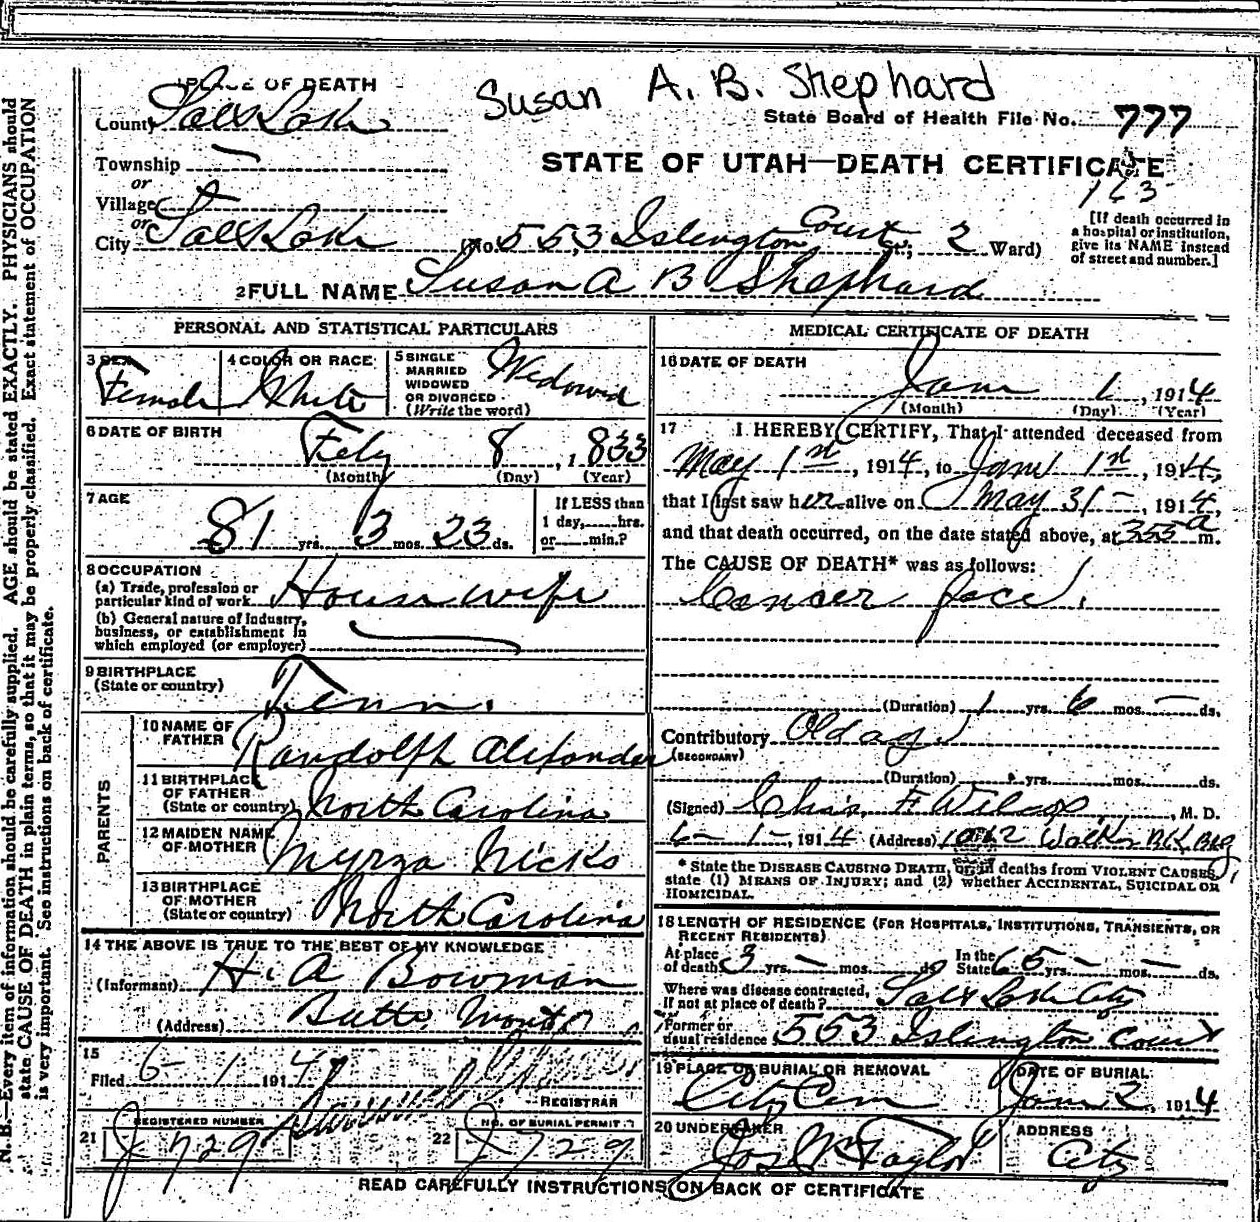 Susan A. B. Shephard
PLACE OF DEATH
County Salt Lake
State Board of Health File No. 777
Township
or
Village
or
City Salt Lake
STATE OF UTAH—DEATH CERTIFICATE
163
(No. 553 Islington Court St.; 2 Ward)
[If death occurred in a hospital or institution, give its NAME instead of street and number.]
2 FULL NAME Susan A B Shephard
PERSONAL AND STATISTICAL PARTICULARS
3 SEX Female
4 COLOR OR RACE White
5 SINGLE MARRIED WIDOWED OR DIVORCED (Write the word) Widowed
6 DATE OF BIRTH Feby 8, 1833
(Month) (Day) (Year)
7 AGE 81 yrs. 3 mos. 23 ds.
If LESS than 1 day, hrs. or min.?
8 OCCUPATION
(a) Trade, profession or particular kind of work House wife
(b) General nature of industry, business, or establishment in which employed (or employer)
9 BIRTHPLACE (State or country) Tenn.
PARENTS
10 NAME OF FATHER Randolph Alexander
11 BIRTHPLACE OF FATHER (State or country) North Carolina
12 MAIDEN NAME OF MOTHER Myrza Nicks
13 BIRTHPLACE OF MOTHER (State or country) North Carolina
14 THE ABOVE IS TRUE TO THE BEST OF MY KNOWLEDGE
(Informant) H. A Bowman
(Address) Butte
15
Filed 6-1 1914
REGISTRAR
REGISTERED NUMBER
21 J-729
NO. OF BURIAL PERMIT
22 J-729
MEDICAL CERTIFICATE OF DEATH
16 DATE OF DEATH
1, 1914
(Month) (Day) (Year)
17 I HEREBY CERTIFY, That I attended deceased from
May 1st, 1914, to 1st, 1914,
that I last saw her alive on May 31 - , 1914,
and that death occurred, on the date stated above, at 355 a m.
The CAUSE OF DEATH* was as follows:
Cancer face.
(Duration) 1 yrs. 6 mos. — ds.
Contributory Old age
(SECONDARY)
(Duration) yrs. mos. ds.
(Signed) Chas. F. Wilcox, M. D.
6-1-, 1914 (Address) Walker Bk Bldg
* State the DISEASE CAUSING DEATH, or in deaths from VIOLENT CAUSES, state (1) MEANS OF INJURY; and (2) whether ACCIDENTAL, SUICIDAL OR HOMICIDAL.
18 LENGTH OF RESIDENCE (FOR HOSPITALS, INSTITUTIONS, TRANSIENTS, OR RECENT RESIDENTS)
At place of death 3 yrs. — mos. ds. In the State 65 yrs. — mos. — ds.
Where was disease contracted, if not at place of death? Salt Lake City
Former or usual residence 553 Islington Court
19 PLACE OF BURIAL OR REMOVAL City Cem
DATE OF BURIAL 2, 1914
20 UNDERTAKER Jos Wm Taylor
ADDRESS City
READ CAREFULLY INSTRUCTIONS ON BACK OF CERTIFICATE
N. B.—Every item of information should be carefully supplied. AGE should be stated EXACTLY. PHYSICIANS should
state CAUSE OF DEATH in plain terms, so that it may be properly classified. Exact statement of OCCUPATION
is very important. See instructions on back of certificate.